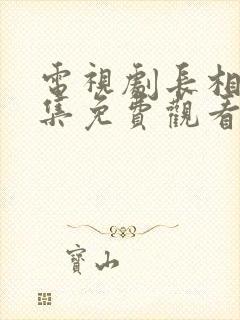 電視劇長相
集免費觀看
寶山